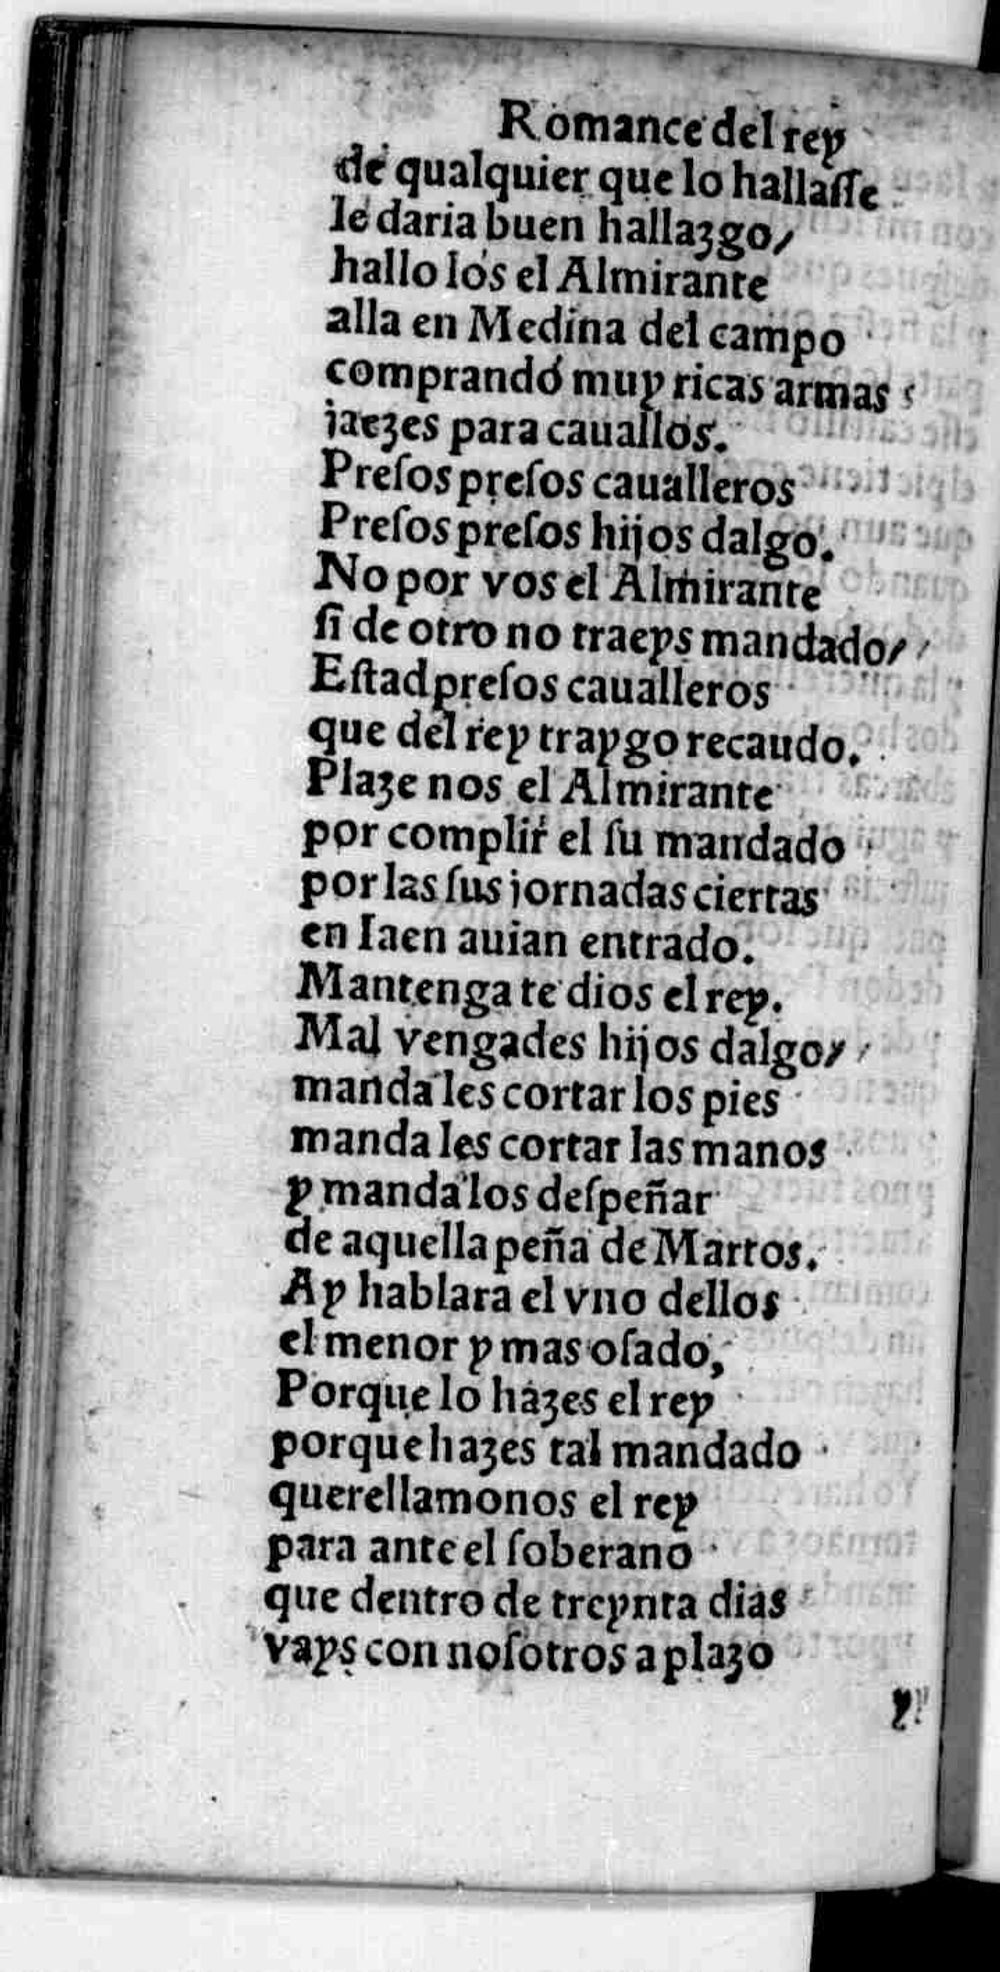 Romance del rey
de qualquier que lo hallaſſe
le daria buen hallazgo/
hallo los el Almirante
alla en Medina del campo
comprando muy ricas armas
jaezes para cauallos.
Preſos preſos caualleros
Preſos preſos hijos dalgo.
No por vos el Almirante
ſi de otro no traeys mandado/
Eſtad preſos caualleros
que del rey traygo recaudo.
Plaze nos el Almirante
por complir el ſu mandado
por las ſus jornadas ciertas
en Iaen auian entrado.
Mantenga te dios el rey.
Mal vengades hijos dalgo/
manda les cortar los pies
manda les cortar las manos
y manda los deſpeñar
de aquella peña de Martos.
Ay hablara el vno dellos
el menor y mas oſado,
Porque lo hazes el rey
porque hazes tal mandado
querellamonos el rey
para ante el ſoberano
que dentro de treynta dias
vays con noſotros a plazo
y